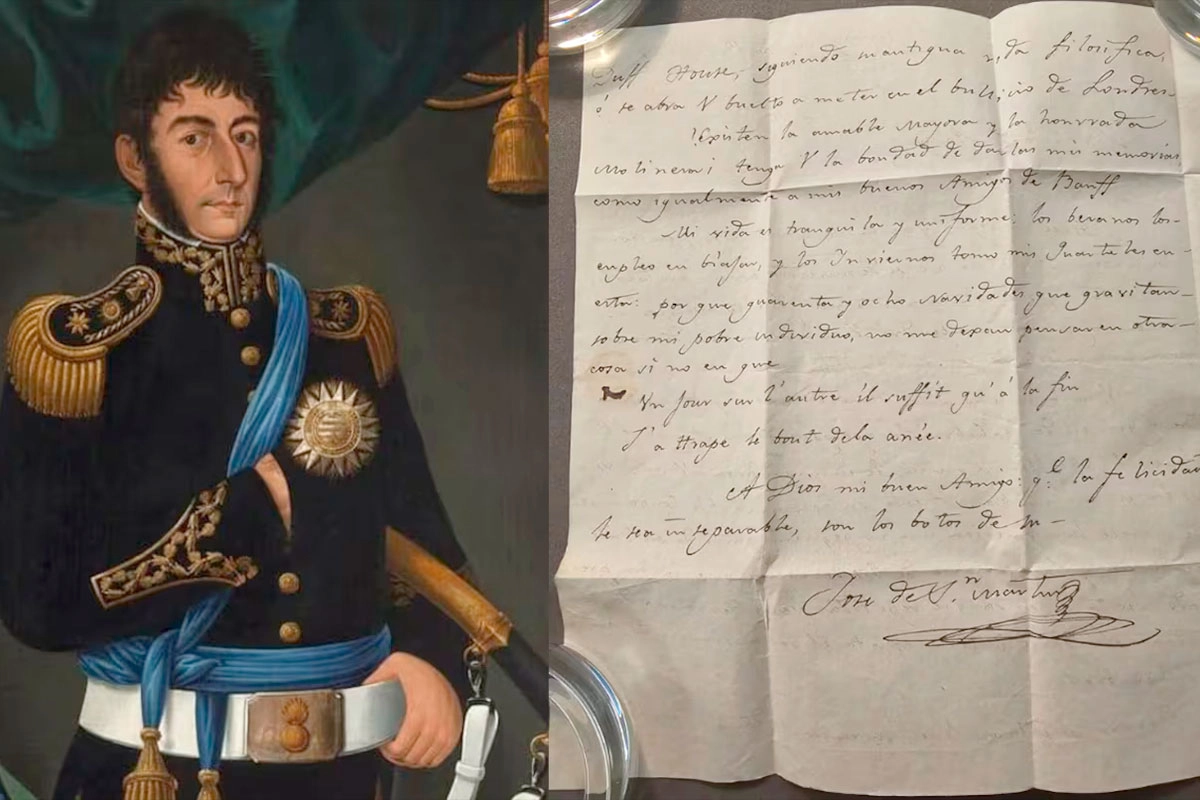 Duff House, siguiendo su antigua vida filosifica,
ó se abra V buelto a meter en el bullicio de Londres
¿Existen la amable Mayora y la honrrada
Molinera? tenga V la bondad de darlas mis memorias
como igualmente a mis buenos Amigos de Banff
Mi vida es tranquila y uniforme: los beranos los
empleo en biajar, y los Inviernos tomo mis Quarteles en
esta: por que quarenta y ocho Navidades que gravitan
sobre mi pobre individuo, no me dexan pensar en otra
cosa si no en que
Un jour sur l'autre il suffit qu'á la fin
J'atrape le bout dela anée.
A Dios mi buen Amigo: qᵉ la felicidad
le sea inseparable, son los botos de su
José de Sⁿ Martin